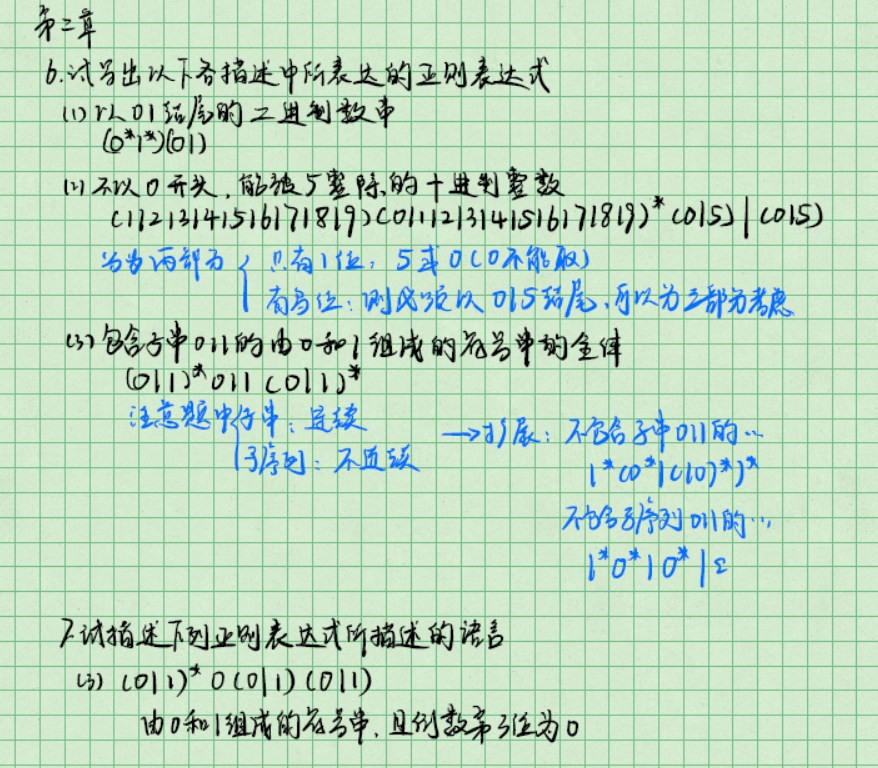 第三章
6.试写出以下各描述中所表达的正则表达式
(1) 以01结尾的二进制数串
(0*1*)(01)
(2) 不以0开头,能被5整除的十进制整数
(1|2|3|4|5|6|7|8|9)(0|1|2|3|4|5|6|7|8|9)*(0|5)|(0|5)
分为两部分 只有1位:5或0(0不能取)
有多位:则必须以0|5结尾,可以为三部分考虑
(3) 包含子串011的由0和1组成的符号串的全体
(0|1)*011(0|1)*
注意题中 子串:连续
子序列:不连续
→扩展:不包含子串011的…
1*(0*|(10)*)*
不包含子序列011的…
1*0*10*|ε
7.试描述下列正则表达式所描述的语言
(3) (0|1)*0(0|1)(0|1)
由0和1组成的符号串,且倒数第3位为0